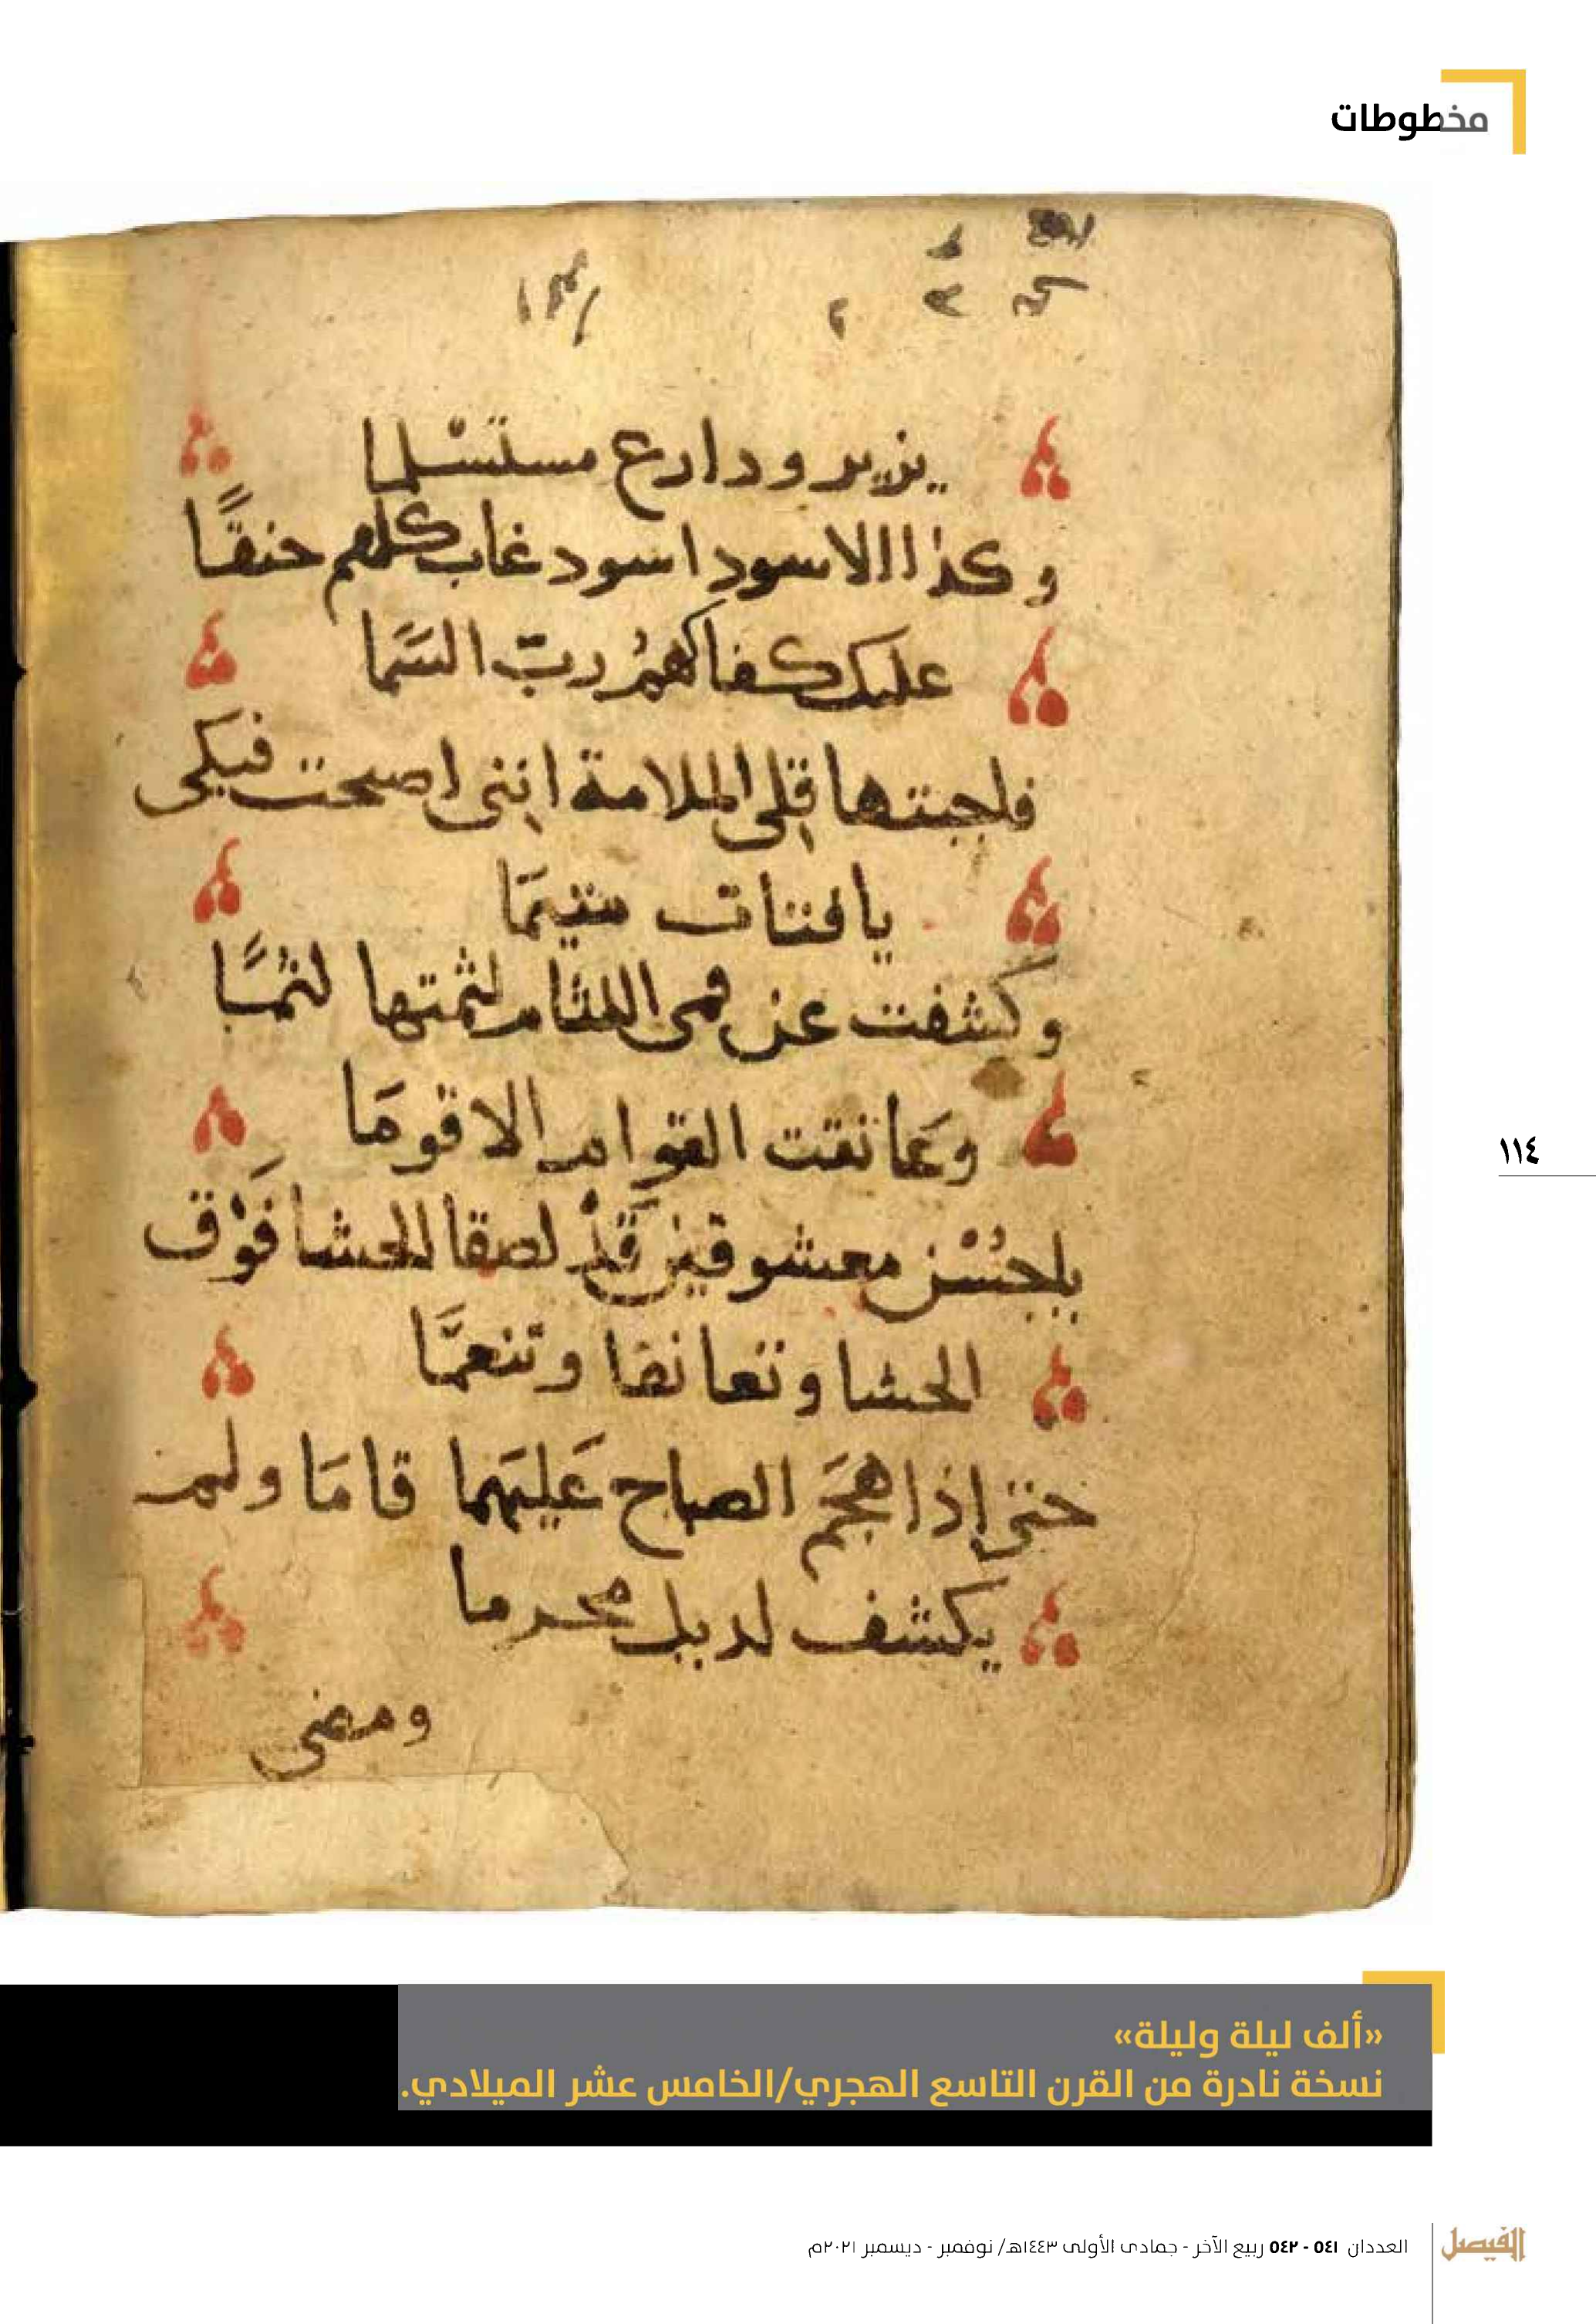 مخطوطات
يزير ودارع مستسلما
وكذا الاسود اسود غاب كلهم حنقًا
عليك كفاكهمُ ربّ السَّما
فاجبتها قِلى الملامة اننى اصبحت فيكى
يا فتات متيمَا
وكشفت عن فمى اللثام لثمتها لثمًا
وعَانقت القوام الاقومَا
باحسْن معشوقين قَدْ لصقا الحشا فَوْق
الحشا وتعانقا وتنعمَّا
حتى إذا هجَم الصباح عَليهما قامَا ولم
يكشف لديك محرما
ومضى
١١٤
«ألف ليلة وليلة»
نسخة نادرة من القرن التاسع الهجري/الخامس عشر الميلادي.
العددان ٥٤١ - ٥٤٢ ربيع الآخر - جمادى الأولى ١٤٤٣هـ/ نوفمبر - ديسمبر ٢٠٢١م
الفيصل